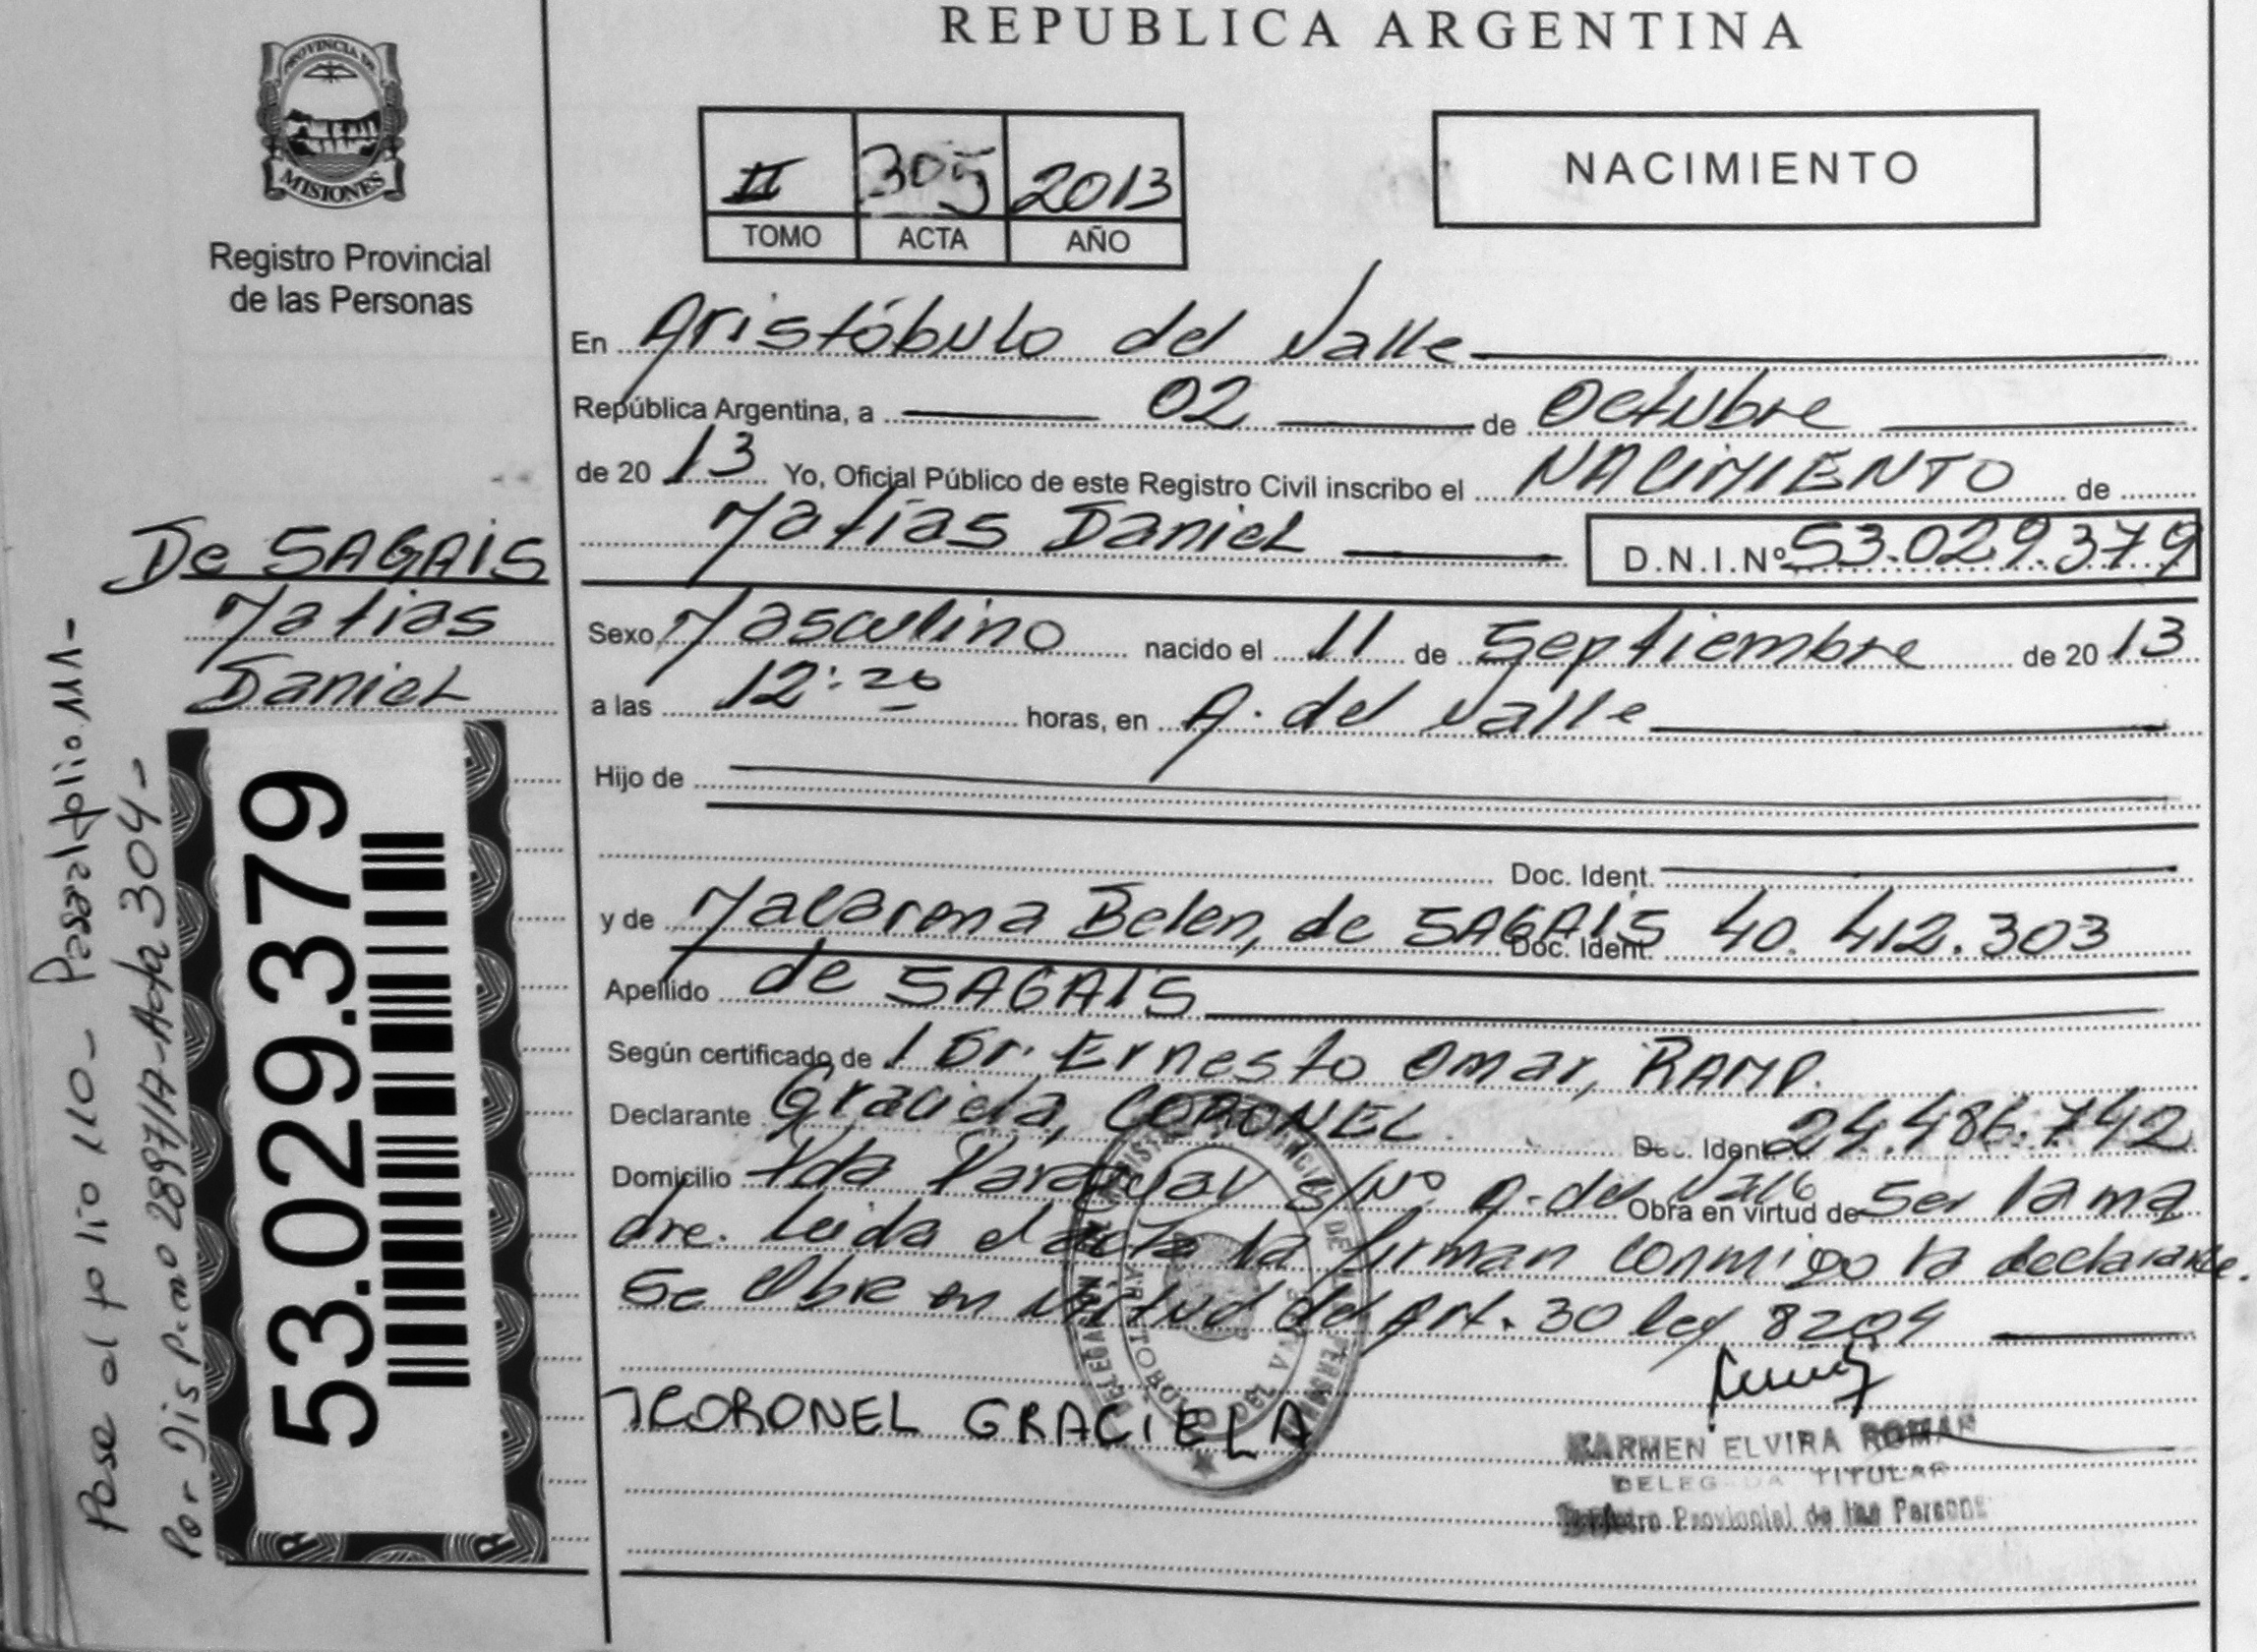 REPUBLICA ARGENTINA
PROVINCIA DE
MISIONES
Registro Provincial
de las Personas
II 305 2013
TOMO ACTA AÑO
NACIMIENTO
En Aristóbulo del Valle
República Argentina, a 02 de Octubre
de 20 13 Yo, Oficial Público de este Registro Civil inscribo el NACIMIENTO de
Matías Daniel D.N.I.Nº 53.029.379
De SAGAIS
Matias
Daniel
Sexo Masculino nacido el 11 de Septiembre de 20 13
a las 12:20 horas, en A. del Valle
Hijo de
Doc. Ident.
y de Macarena Belen, de SAGAIS Doc. Ident. 40.412.303
Apellido de SAGAIS
Según certificado de 1 Dr. Ernesto Omar, RAMP.
Declarante Graciela, CORONEL Doc. Ident. 24.486.742
Domicilio Avda Paraguay s/Nº A. del Valle Obra en virtud de Ser la ma
dre. Leida el acta la firman conmigo la declarante.
Se Obre en virtud del Art. 30 ley 8204
CORONEL GRACIELA
KARMEN ELVIRA ROMAN
DELEGADA TITULAR
Registro Provincial de las Personas
53.029.379
Pase al folio 110 - Pasa al folio 111-
Por Disp. 2897/17-Acta 304-